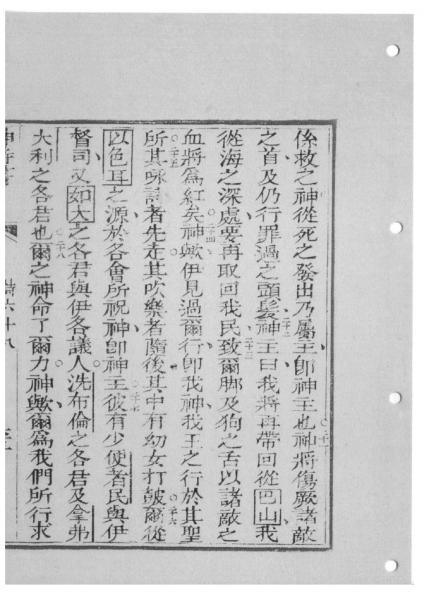 係救之神從死之發出乃屬王即神主也神將傷厥諸敵
之首及仍行罪過之頭髮神主曰我將再帶回從巴山我
從海之深處要再取回我民致爾脚及狗之舌以諸敵之
血將爲紅矣神歟伊見過爾行即我神我王之行於其聖
所其咏詩者先走其吹樂者隨後其中有幼女打皷爾從
以色耳之源於各會所祝神即神主彼有少便者民與伊
督司又如大之各君與伊各議人洗布倫之各君及拿弗
大利之各君也爾之神命了爾力神歟爾爲我們所行求
詩六十八